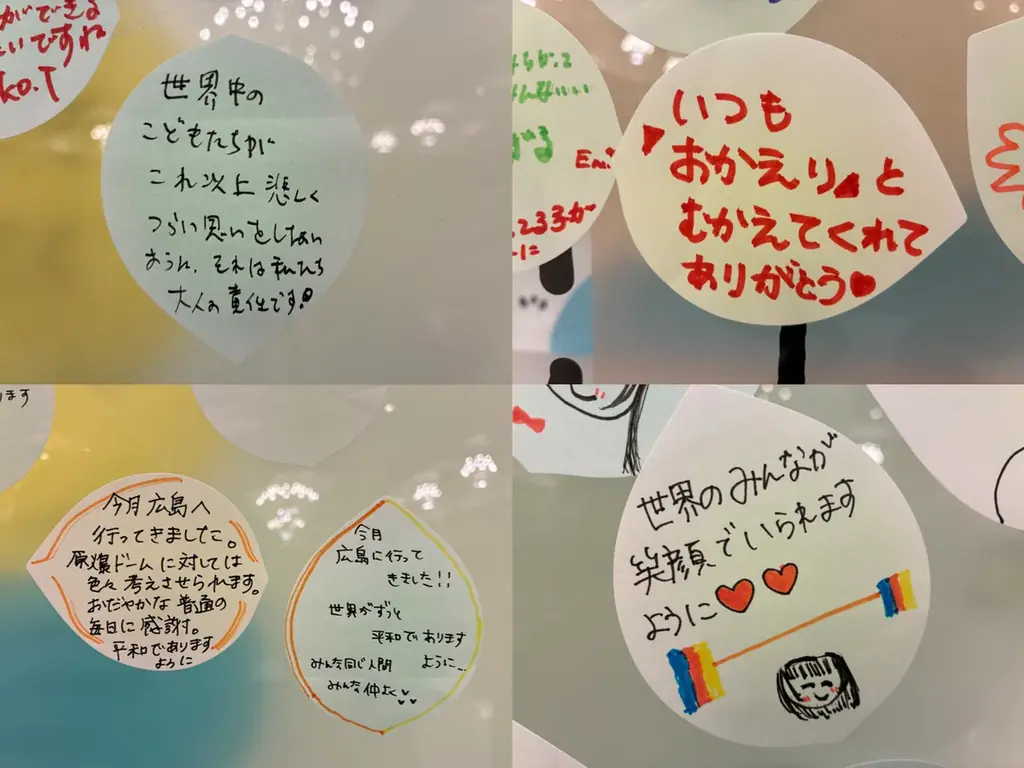 ができる
いですね
ko.T
世界中の
こどもたちが
これ以上悲しく
つらい思いをしない
ように、それは私たち
大人の責任です!
Emi
233が
に
いつも
「おかえり」と
むかえてくれて
ありがとう♥
ります
今月広島へ
行ってきました。
原爆ドームに対しては
色々考えさせられます。
おだやかな普通の
毎日に感謝。
平和であります
ように
今月
広島に行って
きました!!
世界がずっと
平和であります
ように…
みんな同じ人間
みんな仲よく♥♥
世界のみんなが
笑顔でいられます
ように♥♥